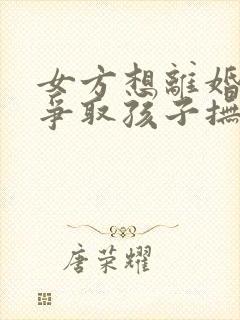 女方想離婚
爭取孩子撫
唐荣耀